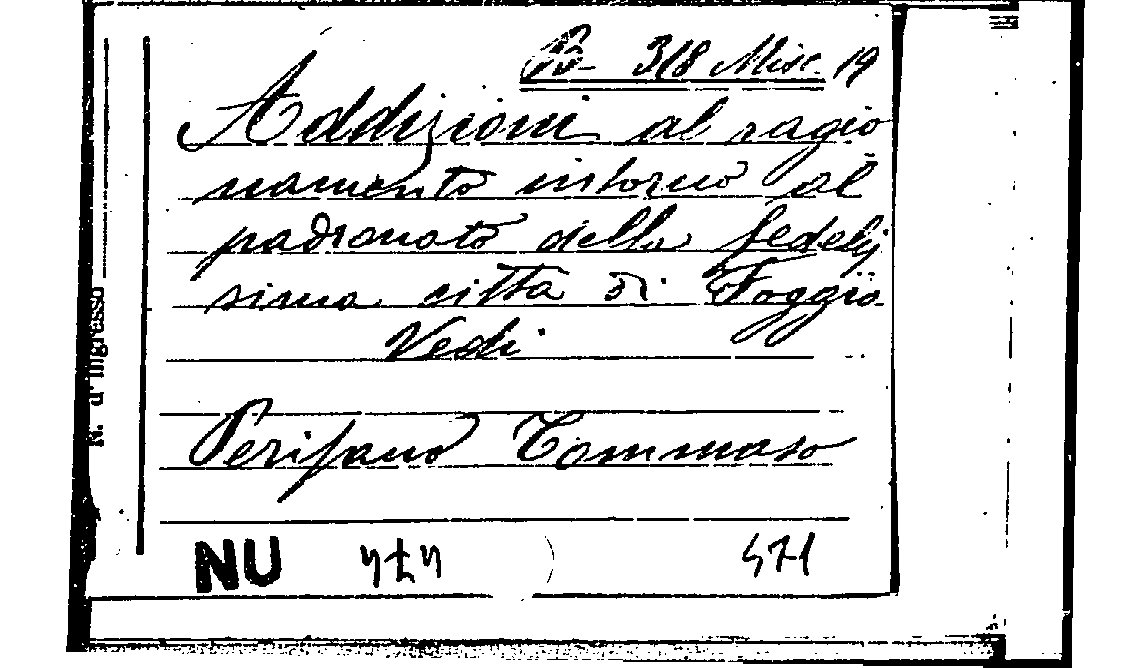 B- 318 Misc. 19
Addizioni al ragio
namento intorno al
padronato della fedelis
sima città di Foggia
Vedi
Perifano Tommaso
NU 471
N. d'ingresso